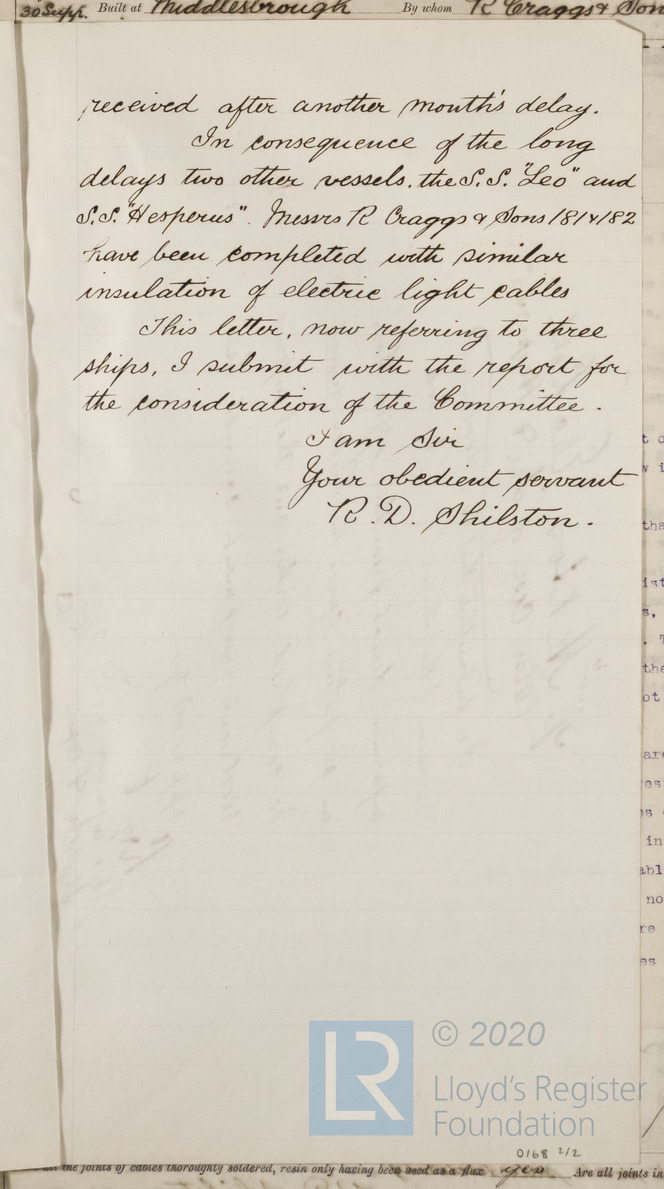 30 Supp. Built at Middlesbrough By whom R Craggs & Son
received after another month's delay.
In consequence of the long
delays two other vessels, the S.S. "Leo" and
S.S. "Hesperus". Messrs R Craggs & Sons 181 & 182
have been completed with similar
insulation of electric light cables
This letter, now referring to three
ships, I submit with the report for
the consideration of the Committee.
I am Sir
Your obedient servant
R. D. Shilston.
© 2020
LR
Lloyd's Register
Foundation
0168 2/2
the joints of cables thoroughly soldered, resin only having been used as a flux yes Are all joints in